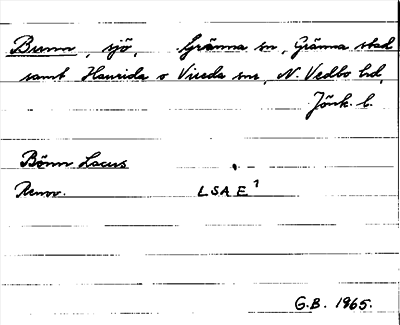 Bunn, sjö, Gränna sn, Gränna stad
samt Haurida o Vireda snr, N. Vedbo hd,
Jönk. l.
Bönn Lacus
Renv. LSA E¹
G.B. 1965.